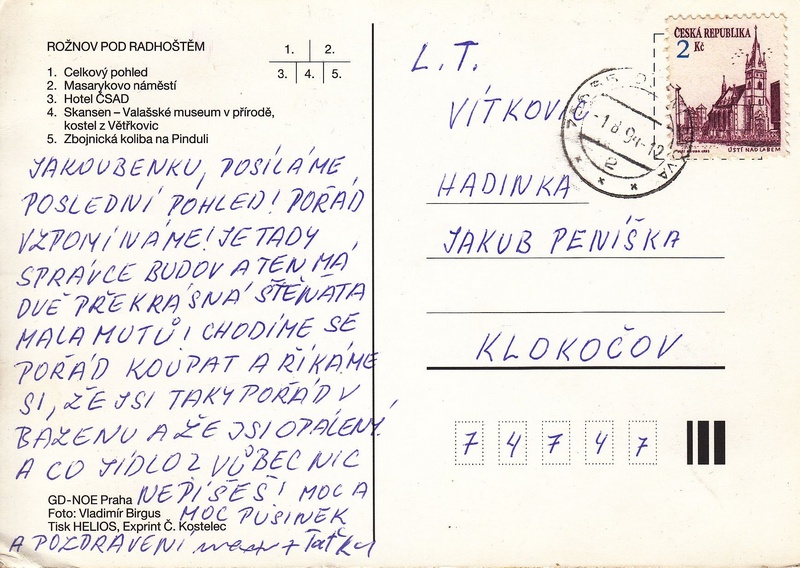 ROŽNOV POD RADHOŠTĚM
1. 2.
3. 4. 5.
1. Celkový pohled
2. Masarykovo náměstí
3. Hotel ČSAD
4. Skansen – Valašské museum v přírodě,
kostel z Větřkovic
5. Zbojnická koliba na Pinduli
JAKOUBENKU, POSÍLÁME
POSLEDNÍ POHLED! POŘÁD
VZPOMÍNÁME! JE TADY
SPRÁVCE BUDOV A TEN MÁ
DVĚ PŘEKRÁSNÁ ŠTĚŇATA
MALAMUTŮ! CHODÍME SE
POŘÁD KOUPAT A ŘÍKÁME
SI, ŽE JSI TAKY POŘÁD V
BAZENU A ŽE JSI OPÁLENÝ!
A CO JÍDLO? VŮBEC NIC
NEPÍŠEŠ! MOC A
MOC PUSINEK
A POZDRAVENÍ
GD-NOE Praha
Foto: Vladimír Birgus
Tisk HELIOS, Exprint Č. Kostelec
L.T.
VÍTKOVIC
HADINKA
JAKUB PENÍŠKA
KLOKOČOV
7 4 7 4 7
ČESKÁ REPUBLIKA
2 Kč
ÚSTÍ NAD LABEM
-1.8.94-12
2